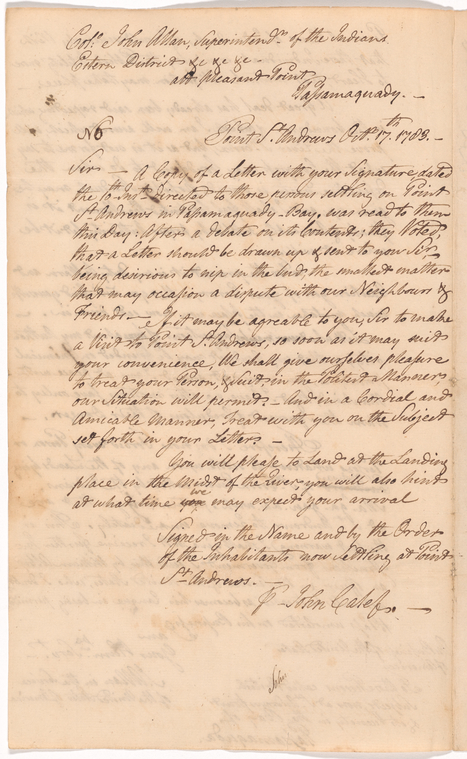 Coll. John Allan, Superintendt. of the Indians
Estern District &c &c &c -
att Pleasant Point
Passamaquady. -
N6 Point St. Andrews Octr. 17th. 1783. -
Sir - A Copy of a Letter with your Signature dated
the Inst. directed to those persons settling on Point
St. Andrews in Passamaquady-Bay, was read to them
this Day: After a debate on its Contents; they Voted,
that a Letter should be drawn up & sent to you Sir,
being desirious to nip in the bud, the smallest matter
that may occasion a dispute with our Neighbours &
Friends. - If it may be agreable to you, Sir to make
a Visit to Point St. Andrews, so soon as it may suit
your convenience, We shall give ourselves pleasure
to treat your Person, & Suit, in the Politest Manner
our Situation will permit - And in a Cordial and
Amicable Manner, Treat with you on the Subject
set forth in your Letter -
You will please to Land at the Landing
place in the Midst of the River, you will also hint
at what time we may expect your arrival
Signed in the Name and by the Order
of the Inhabitants now Settling at Point
St. Andrews. -
P John Calef. -
John